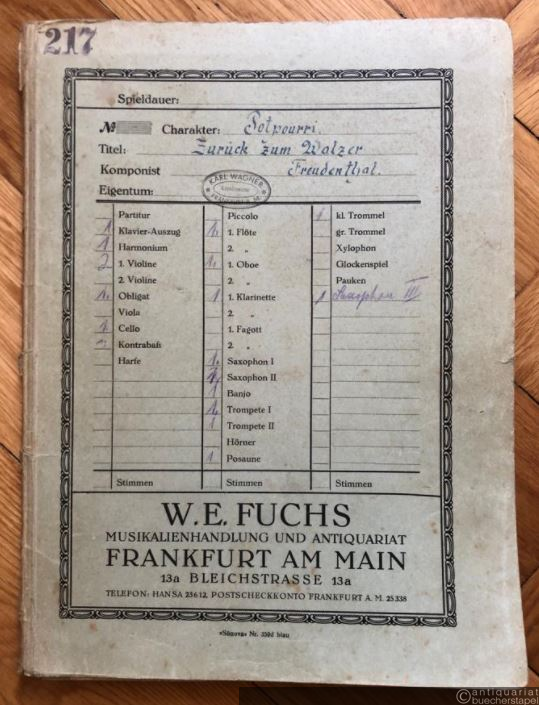 217
Spieldauer:
№ Charakter: Potpourri.
Titel: Zurück zum Walzer
Komponist Freudenthal.
Eigentum: KARL WAGNER FRANKFURT A. M.
Partitur
1 Klavier-Auszug
1 Harmonium
2 1. Violine
2. Violine
1. Obligat
Viola
1 Cello
Kontrabaß
Harfe
Stimmen
Piccolo
1. 1. Flöte
2. „
1. 1. Oboe
2. „
1 1. Klarinette
2. „
1. Fagott
2. „
1. Saxophon I
1 Saxophon II
1 Banjo
1. Trompete I
1 Trompete II
Hörner
1 Posaune
Stimmen
1 kl. Trommel
gr. Trommel
Xylophon
Glockenspiel
Pauken
1 Saxophon III
Stimmen
W. E. FUCHS
MUSIKALIENHANDLUNG UND ANTIQUARIAT
FRANKFURT AM MAIN
13a BLEICHSTRASSE 13a
TELEFON: HANSA 23612, POSTSCHECKKONTO FRANKFURT A. M. 25338
Nr. 350d blau
©antiquariat
buecherstapel